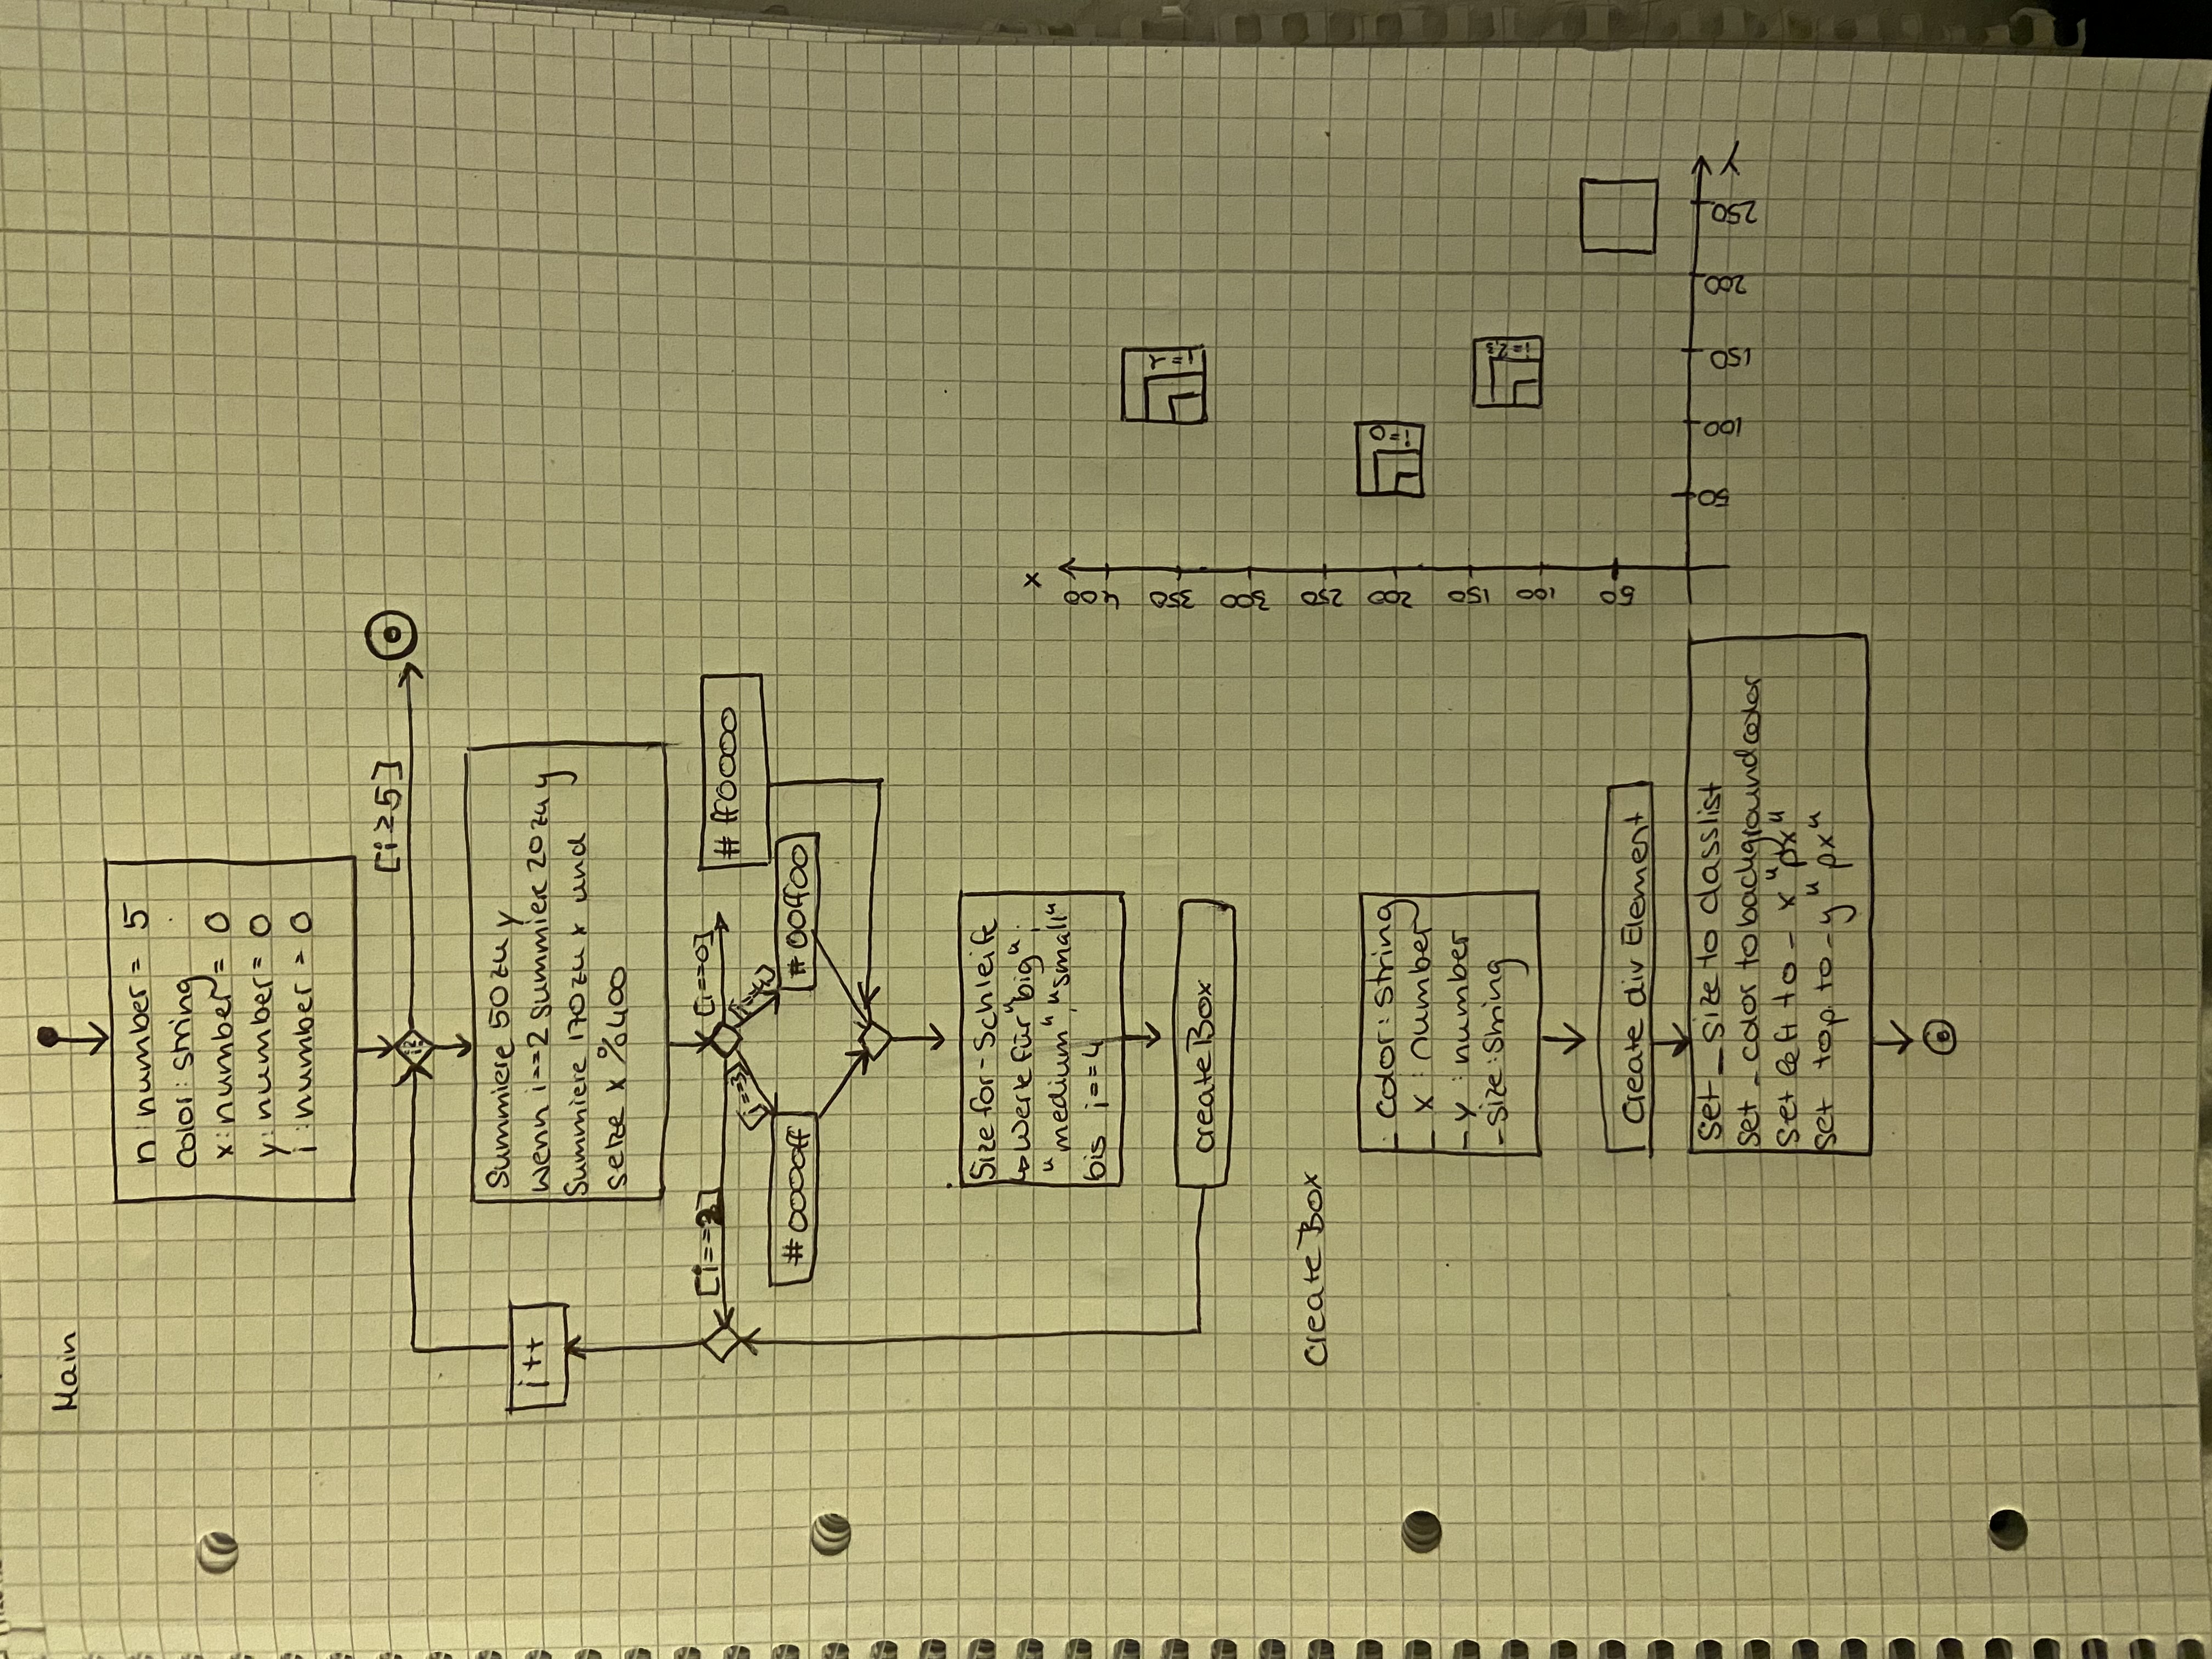 Main
n:number = 5
color: string
x:number = 0
y:number = 0
i:number = 0
[i≥5]
i?
i++
Summiere 50 zu y
wenn i==2 summiere 20 zu y
Summiere 170 zu x und
setze x %400
[i==2]
[i==0]
[i==3]
#ff0000
#0000ff
#00ff00
Size for-Schleife
↳ Werte für "big",
"medium", "small"
bis i==4
createBox
createBox
_ color: string
_ x : number
_ y : number
_size: string
Create div Element
set _size to classlist
set _color to backgroundcolor
set left to _ x "px"
set top to _y "px"
x
400
350
300
250
200
150
100
50
i=0
i=2,3
50
100
150
200
250
y